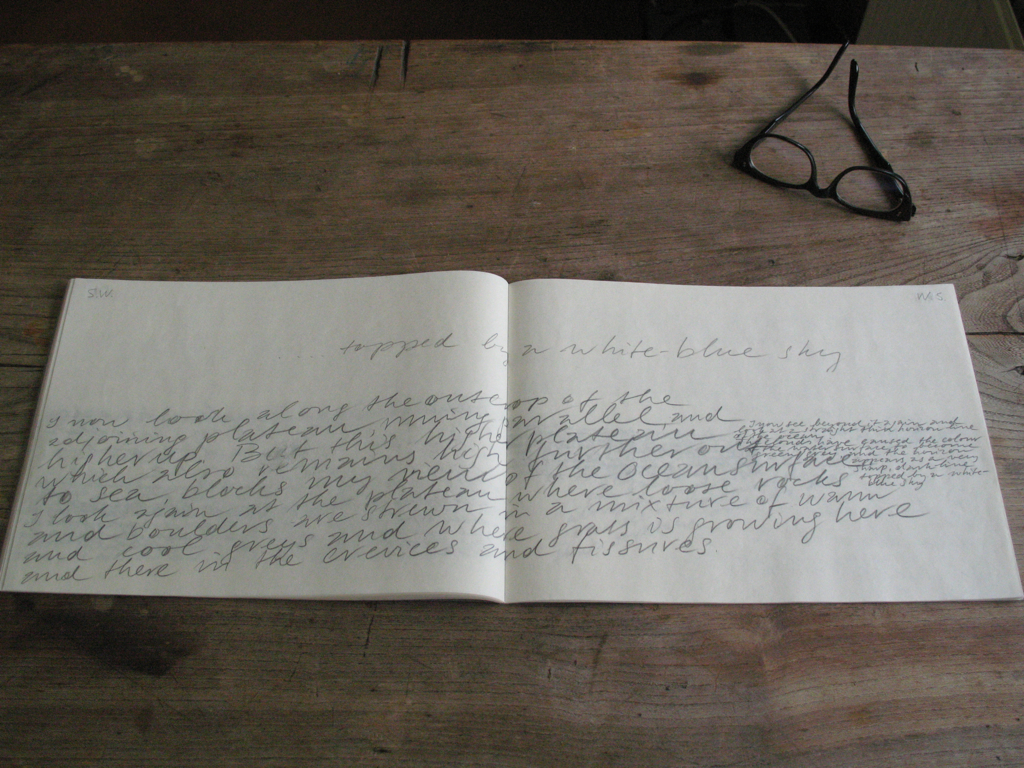 S.W.
W.S.
topped by a white-blue sky
I now look along the outcrop of the
adjoining plateau running parallel and
higher up. But this higher plateau
which also remains high further out
to sea, blocks my view of the ocean surface
I look again at the plateau where loose rocks
and boulders are strewn in a mixture of warm
and cool greys and where grass is growing here
and there in the crevices and fissures.
clouds have caused the colour
and the horizon
appears as a very
sharp, dark line
topped by a white-
blue sky